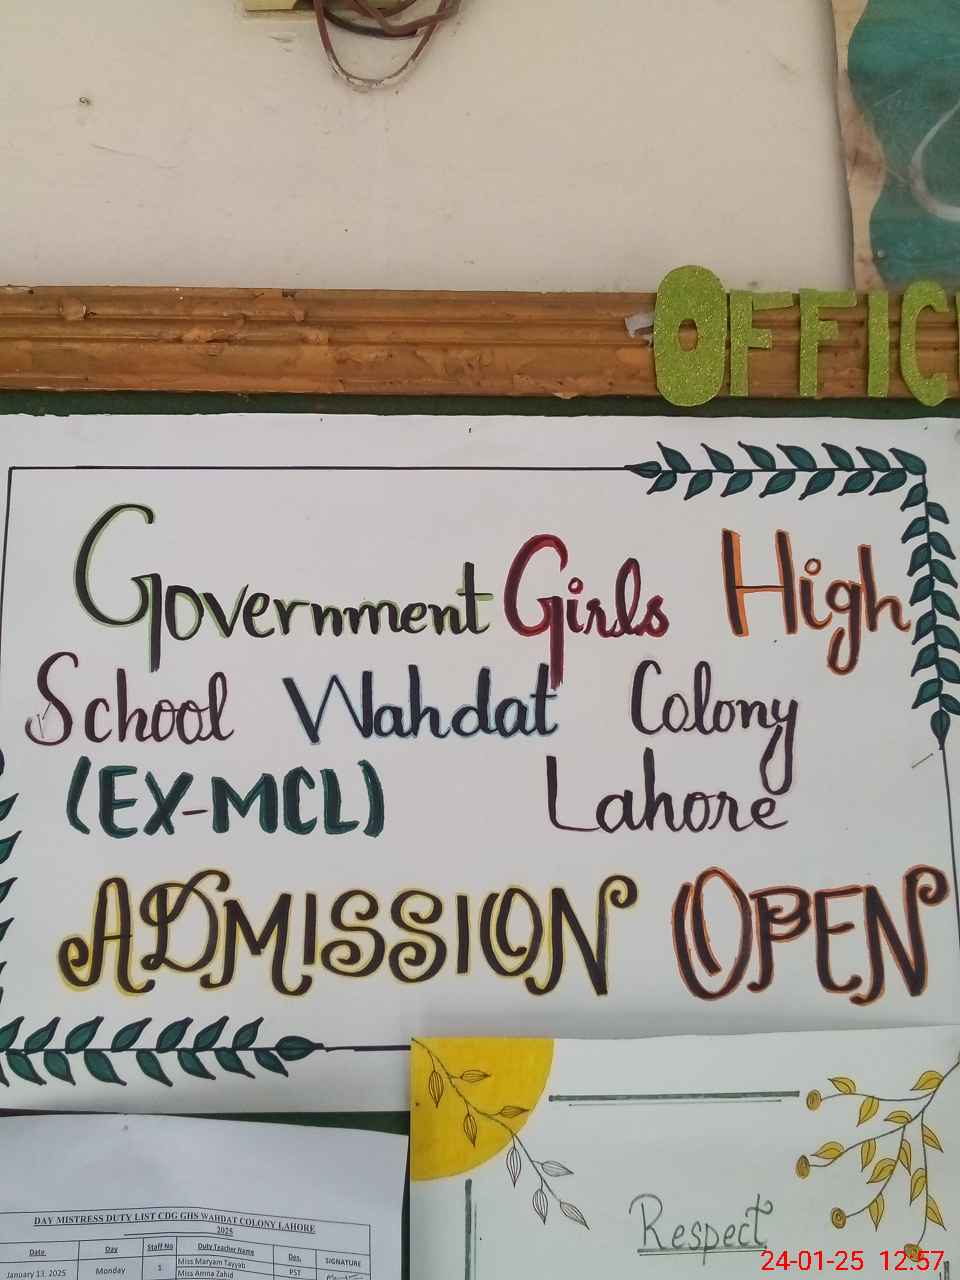 OFFIC
Government Girls High
School Wahdat Colony
(EX-MCL) Lahore
ADMISSION OPEN
DAY MISTRESS DUTY LIST CDG GHS WAHDAT COLONY LAHORE
2025
Date Day Staff No Duty Teacher Name Des. SIGNATURE
January 13, 2025 Monday 1 Miss Maryam Tayyab
Miss Amna Zahid PST
Respect
24-01-25 12:57